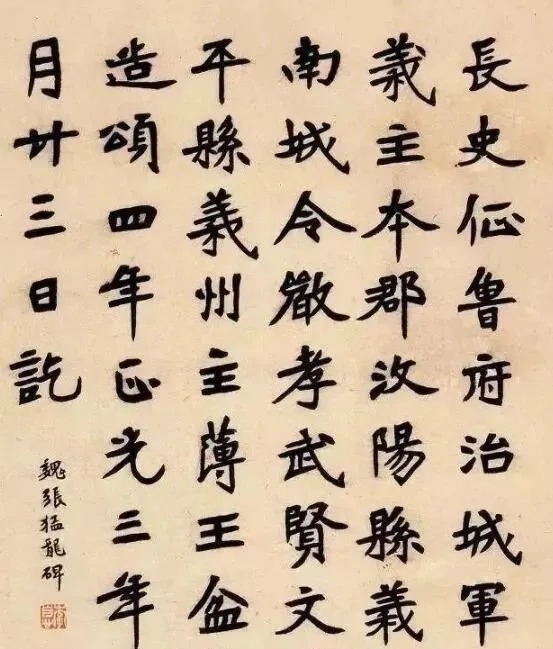 長史征魯府治城軍
義主本郡汝陽縣義
南城令嚴孝武賢文
平縣義州主薄王盆
造頌四年正光三年
月廿三日訖
魏張猛龍碑